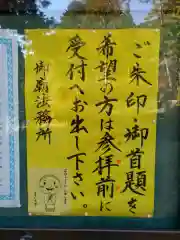 ご朱印・御首題を
希望の方は参拝前に
受付へお出し下さい。
御霸法務所